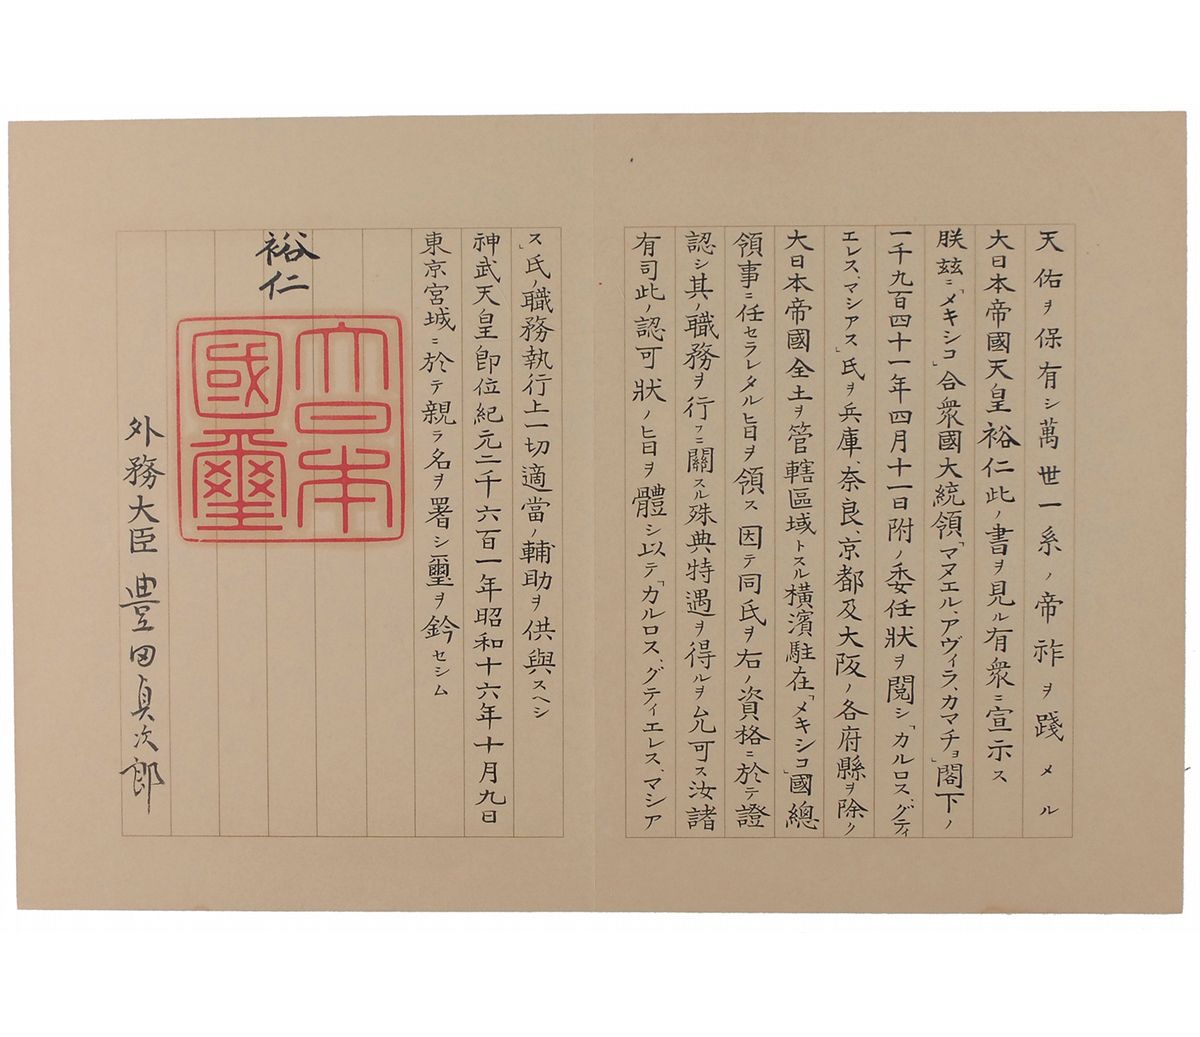 天佑ヲ保有シ萬世一系ノ帝祚ヲ踐メル
大日本帝國天皇裕仁此ノ書ヲ見ル有衆ニ宣示ス
朕玆ニ「メキシコ」合衆國大統領「マヌエル、アヴィラ、カマチョ」閣下ノ
一千九百四十一年四月十一日附ノ委任狀ヲ閲シ「カルロス、グティ
エレス、マシアス」氏ヲ兵庫、奈良、京都及大阪ノ各府縣ヲ除ク
大日本帝國全土ヲ管轄區域トスル橫濱駐在「メキシコ」國總
領事ニ任セラレタル旨ヲ領ス因テ同氏ヲ右ノ資格ニ於テ證
認シ其ノ職務ヲ行フニ關スル殊典特遇ヲ得ルヲ允可ス汝諸
有司此ノ認可狀ノ旨ヲ體シ以テ「カルロス、グティエレス、マシア
ス」氏ノ職務執行上一切適當ノ輔助ヲ供與スヘシ
神武天皇卽位紀元二千六百一年昭和十六年十月九日
東京宮城ニ於テ親ラ名ヲ署シ璽ヲ鈐セシム
裕仁
大日本
國璽
外務大臣豊田貞次郎